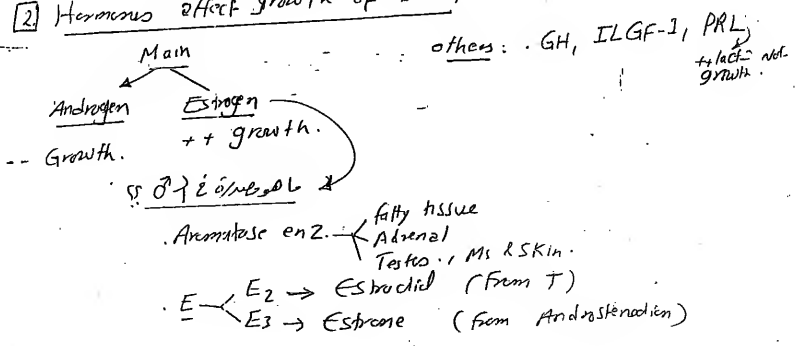 2 Hormones affect growth of
Main
others: . GH, ILGF-I, PRL
++ lact= not growth.
Androgen Estrogen
-- Growth. ++ growth.
؟؟ ♂
. Aromatase enz.
fatty tissue
Adrenal
Testes., Ms & Skin.
. E
E2 → Estradiol (From T)
E3 → Estrone (from Androstenedion)